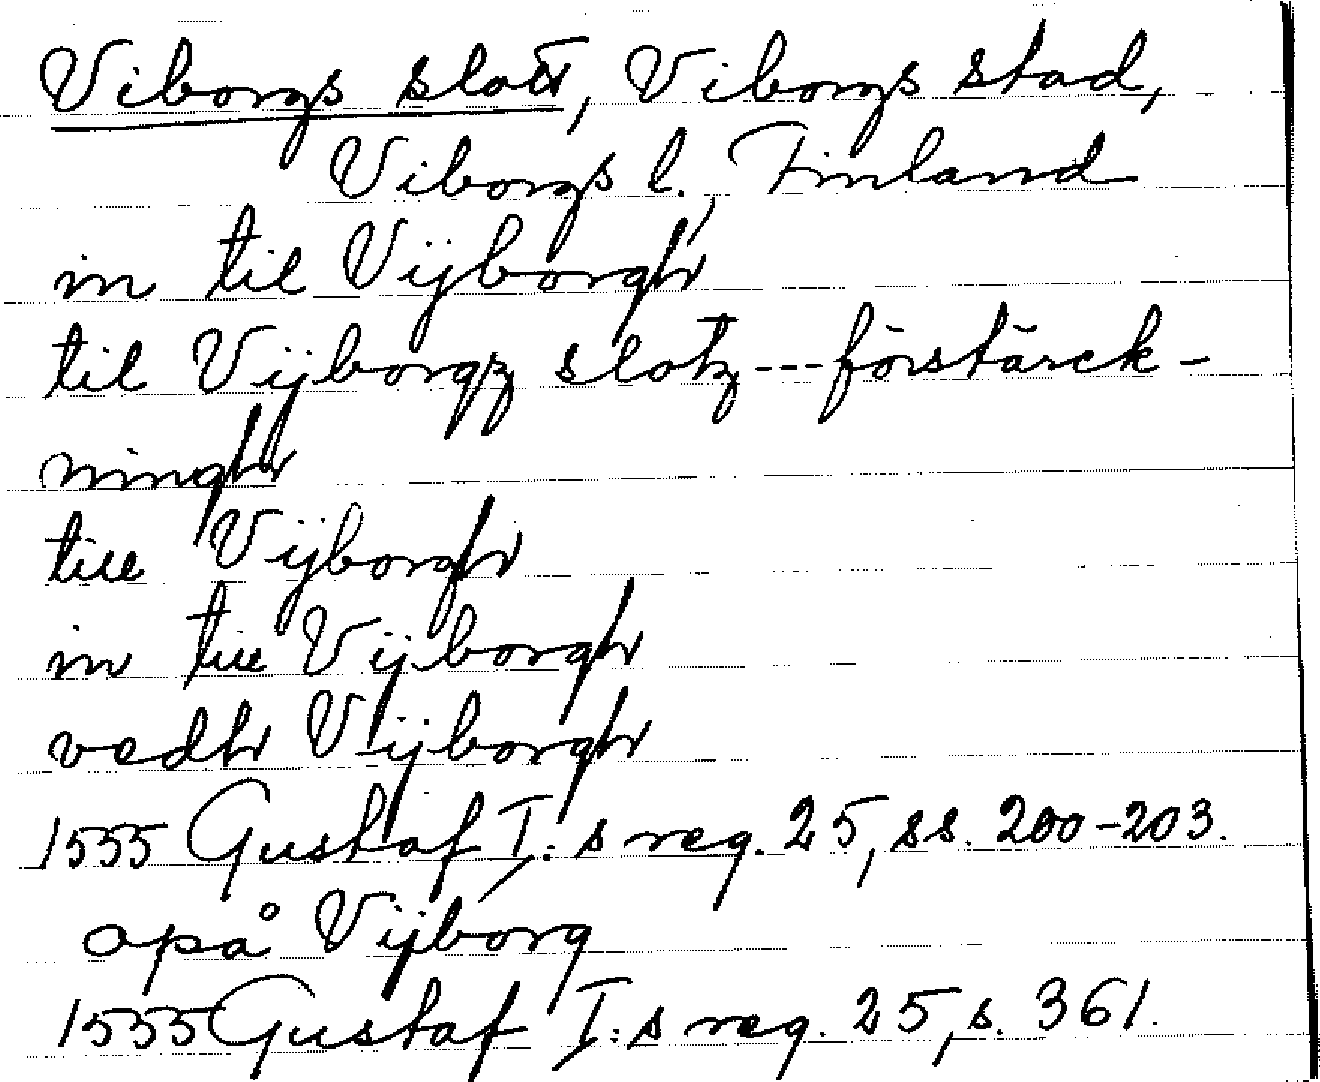 Viborgs slott, Viborgs stad,
Viborgs l. Finland
in til Vijborgh
til Vijborgz slotz---förstärck-
ningh
till Vijborgh
in till Vijborgh
vedh Vijborgh
1555 Gustaf I:s reg. 25, ss. 200-203.
opå Vijborg
1555 Gustaf I:s reg. 25, s. 361.